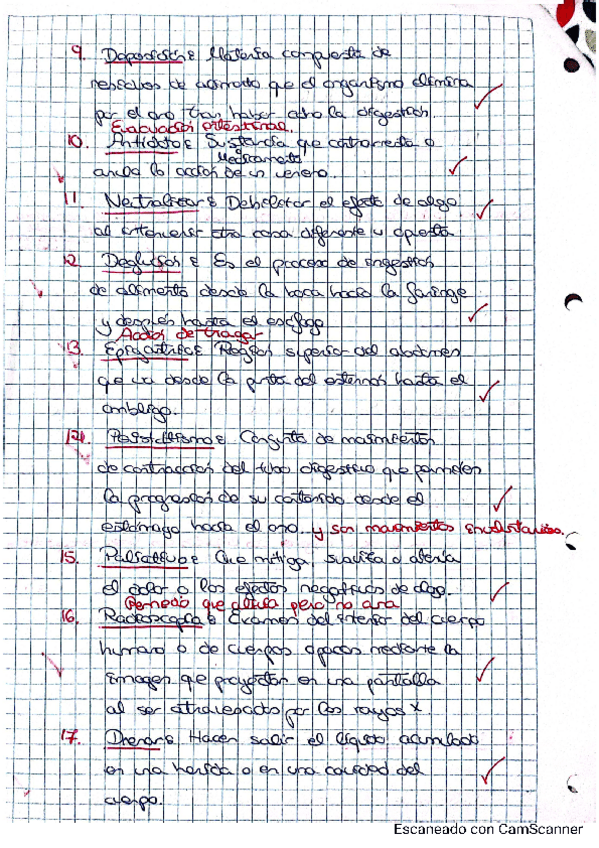 9. Deposición: Materia compuesta de
residuos de alimento que el organismo elimina
por el ano tras haber sido la digestión.
Evacuación intestinal.
10. Antídoto: Sustancia que contrarresta o
Medicamento
anula la acción de un veneno.
11. Neutralizar: Debilitar el efecto de algo
al intervenir otra cosa diferente u opuesta
12. Deglución: Es el proceso de ingestión
de alimento desde la boca hacia la faringe
y después hasta el esófago
Acción de tragar
13. Epigastrio: Región superior del abdomen
que va desde la punta del esternón hasta el
ombligo.
14. Peristaltismo: Conjunto de movimientos
de contracción del tubo digestivo que permiten
la progresión de su contenido desde el
estómago hacia el ano. y son movimientos involuntarios.
15. Paliativo: Que mitiga, suaviza o atenúa
el dolor o los efectos negativos de algo.
Remedio que alivia pero no cura
16. Radioscopia: Examen del interior del cuerpo
humano o de cuerpos opacos mediante la
imagen que proyectan en una pantalla
al ser atravesados por los rayos x
17. Drenar: Hacen salir el líquido acumulado
en una herida o en una cavidad del
cuerpo.
Escaneado con CamScanner